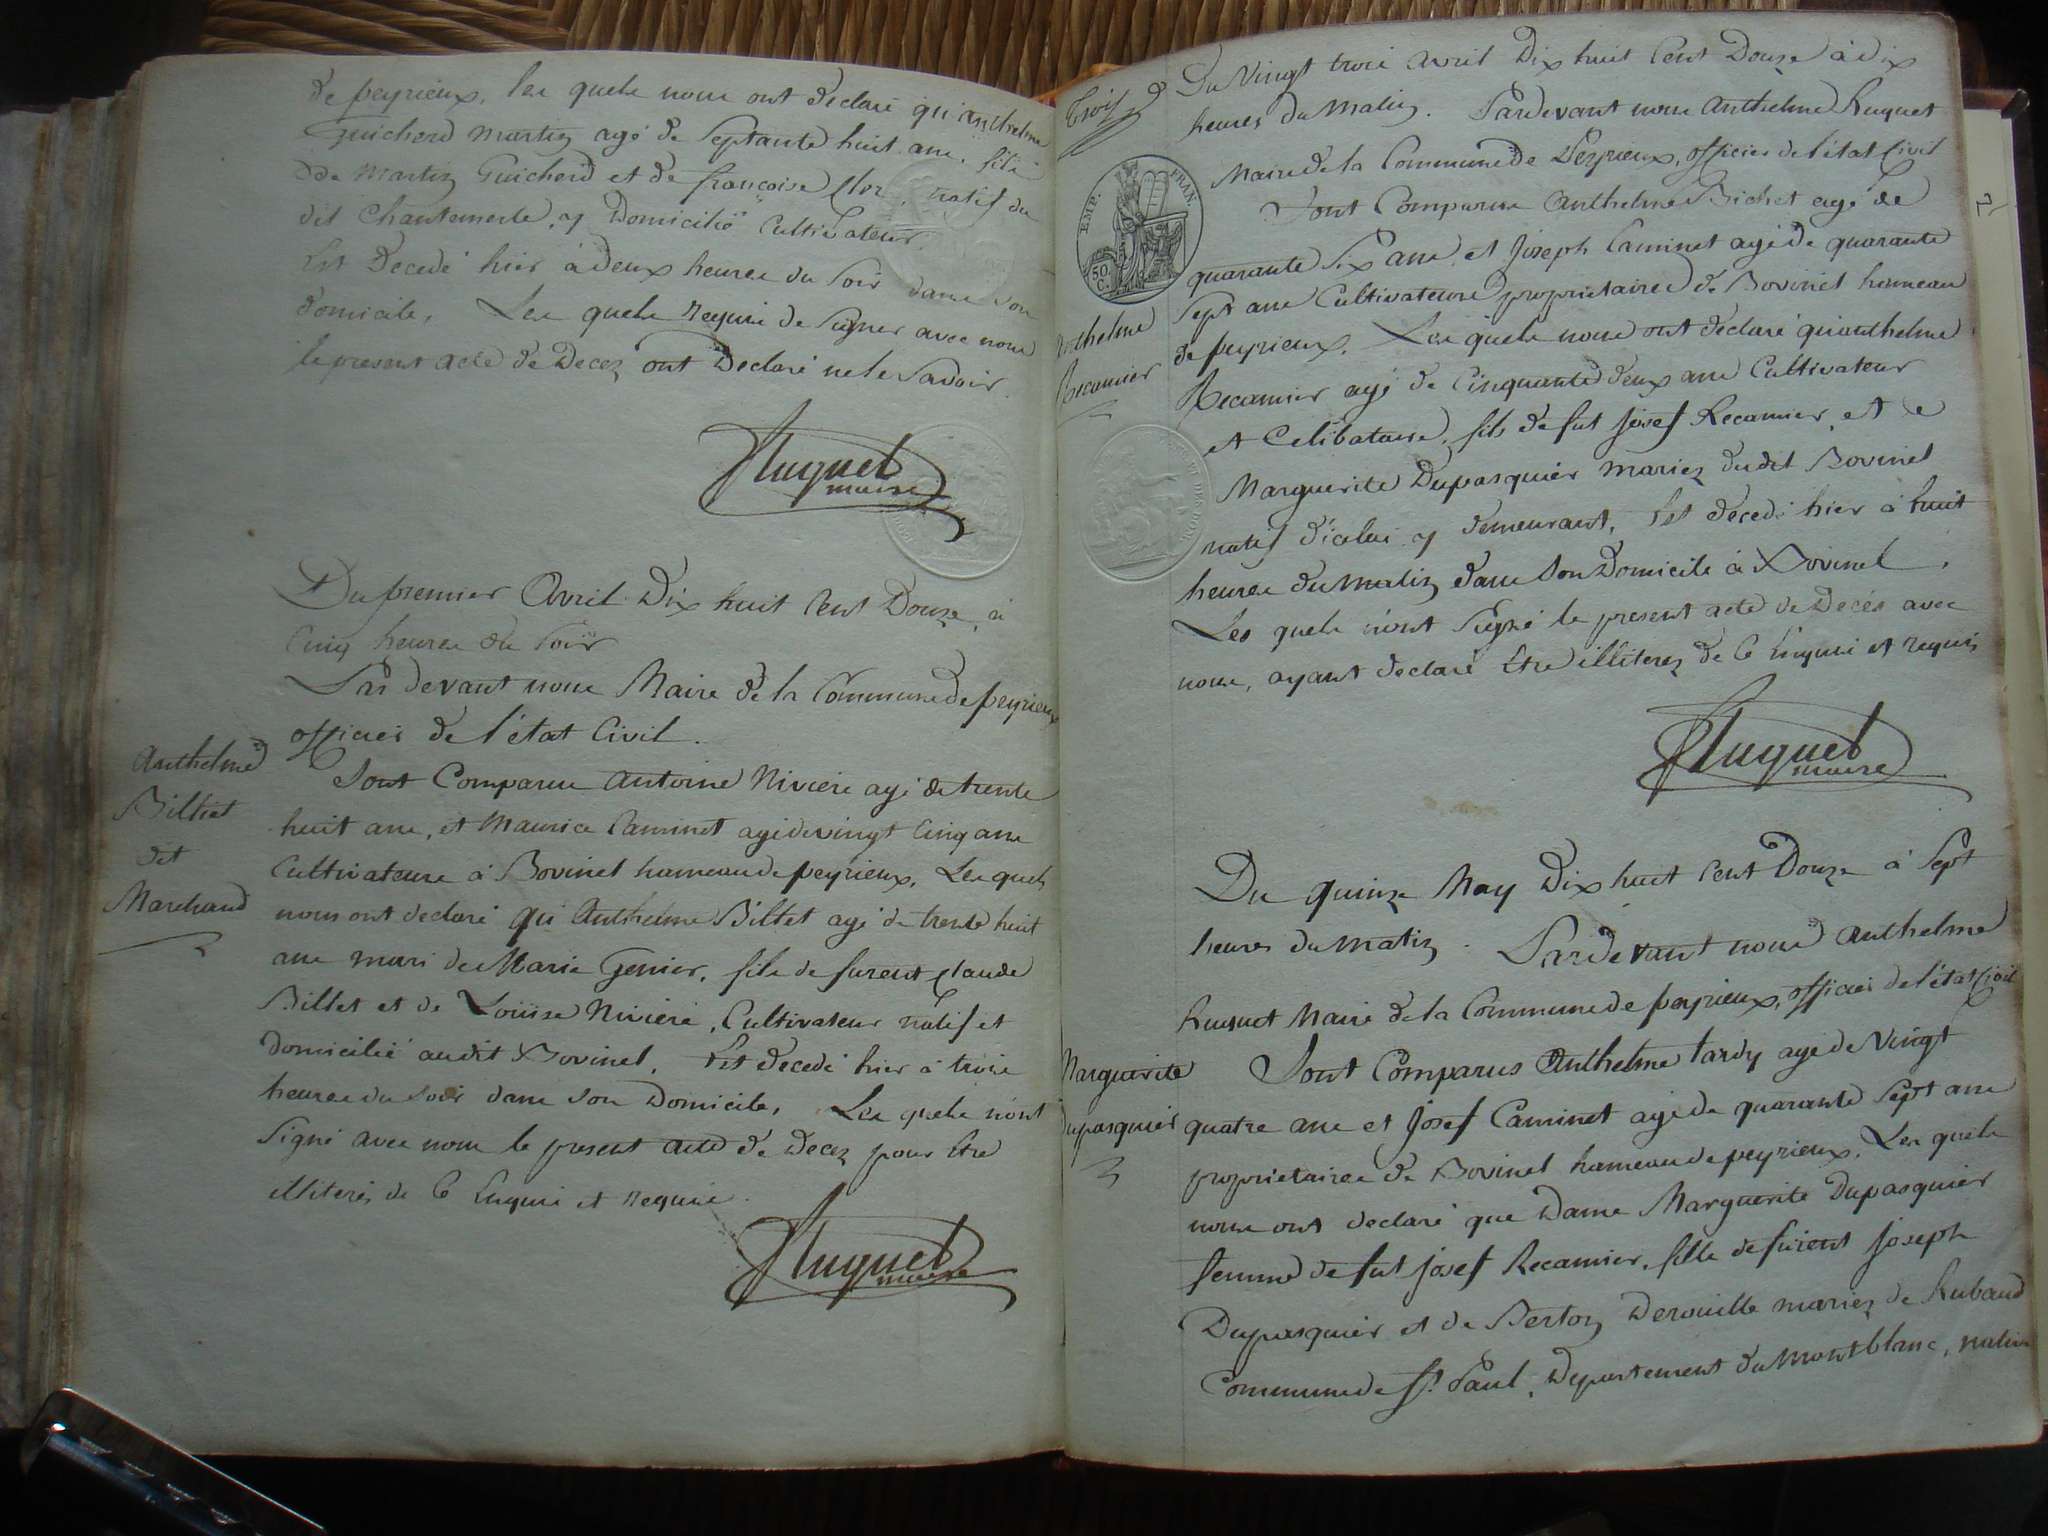 de peyrieux, les quels nous ont declaré qu'anthelme
Guicherd Martin agé de Septante huit ans, fils
de Martin Guicherd et de françoise Clor, natif du
dit Chantemerle, y Domicilié Cultivateur.
Est Decedé hier à deux heures du Soir dans son
domicile, Les quels Requis de Signer avec nous
le present acte de Decez ont Declaré ne le Savoir.
Huguet
maire
Du premier Avril Dix huit Cent Douze, à
Cinq heures du Soir
Par devant nous Maire de la Commune de peyrieux
officier de l'état Civil.
Anthelme
Billiet
dit
Marchand
Sont Comparus Antoine Niviere agé de trente
huit ans, et Maurice Caminet agé de vingt Cinq ans
Cultivateurs à Bovinel hameau de peyrieux, Les quels
nous ont declaré qu'Anthelme Billet agé de trente huit
ans mari de Marie Genier, fils de furent Claude
Billet et de Loüise Niviere, Cultivateur natif et
domicilié audit Bovinel, Est decedé hier à trois
heures du Soir dans son Domicile, Les quels n'ont
Signé avec nous le present acte de Decez pour Etre
illiterés de Ce Enquis et Requis.
Huguet
maire
Trois
EMP. FRAN.
50.
C.
Du Vingt trois avril Dix huit Cent Douze à Dix
heures du Matin. Pardevant nous Anthelme Huguet
Maire de la Commune de Peyrieux, officier de l'état Civil
Sont Comparus Anthelme Bichet agé de
quarante Six ans et Joseph Caminet agé de quarante
Sept ans Cultivateurs proprietaires de Bovinel hameau
de peyrieux. Les quels nous ont declaré qu'anthelme
Anthelme
Recamier
Recamier agé de Cinquante deux ans Cultivateur
et Celibataire, fils de fut Josef Recamier, et de
Marguerite Dupasquier mariez dudit Bovinel
natif d'icelui y demeurant, Est decedé hier à huit
heures du matin dans Son Domicile à Bovinel,
Les quels n'ont Signé le present acte de Decés avec
nous, ayant declaré Etre illiterez de Ce Enquis et requis
Huguet
maire
Du quinze May Dix huit Cent Douze à Sept
heures du matin. Pardevant nous Anthelme
Huguet Maire de la Commune de peyrieux, officier de l'état Civil
Marguerite
Dupasquier
Sont Comparus Anthelme tardy agé de Vingt
quatre ans et Josef Caminet agé de quarante Sept ans
proprietaires de Bovinel hameau de peyrieux. Les quels
nous ont declaré que Dame Marguerite Dupasquier
femme de fut Josef Recamier, fille de furent Joseph
Dupasquier et de Berton Derouille mariez de Rubaud
Commune de St. Paul, Departement du Montblanc, native